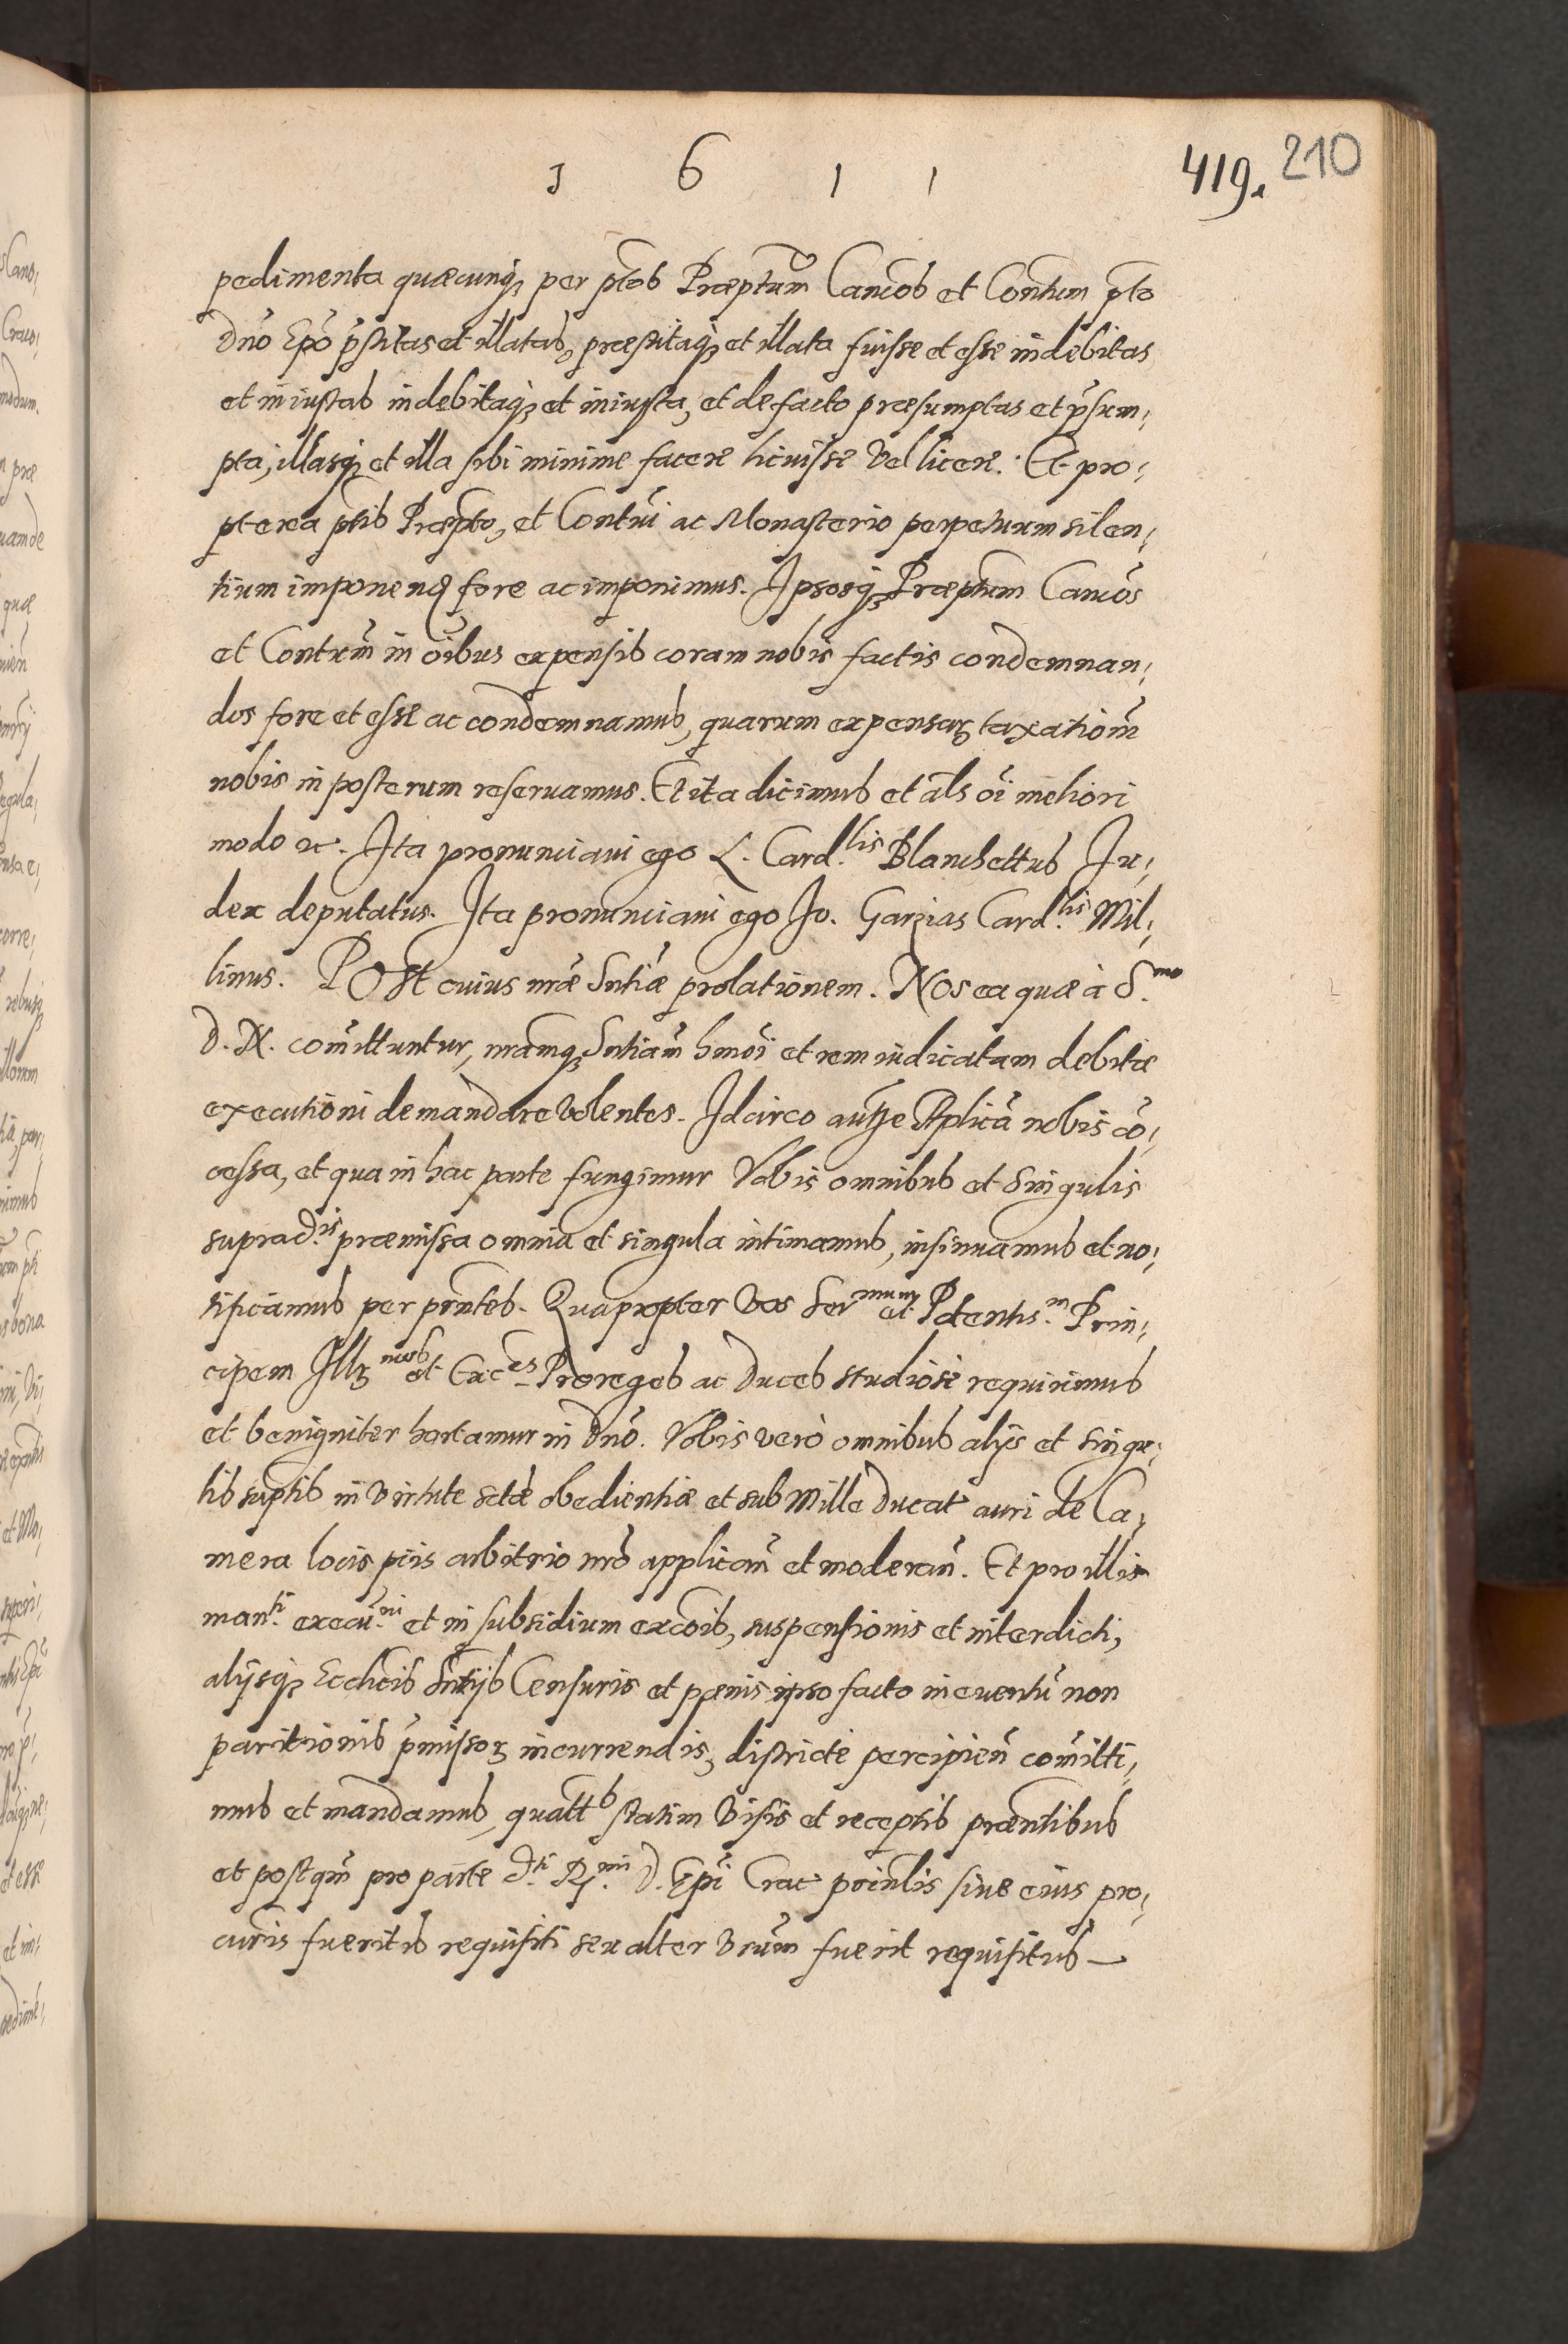 1 6 1 1
419. 210
pedimenta quæcunq; per ptos Præptum Cancos et Contum pto
Dno Epo pstitas et illatas, præstitaq; et illata fuisse et esse indebitas
et iniustas indebitaq; et iniusta, et de facto præsumptas et psum,
pta, illasq; et illa sibi minime facere licuisse vel licere. Et pro,
pterea ptis Præpto, et Contui ac Monasterio perpetuum silen,
tium imponend fore ac imponimus. Ipsosq; Præptum Cancos
et Contum in oibus expensis coram nobis factis condemnan,
dos fore et esse ac condemnamus, quarum expensarz taxationem
nobis in posterum reseruamus. Et ita dicimus et als oi meliori
modo etc. Ita pronunciaui ego L. Card.lis Blanchettus Iu,
dex deputatus. Ita pronunciaui ego Io. Garzias Card.lis Mil,
linus. POst cuius nræ Sntiæ prolationem. Nos ea quæ à S.mo
D. N. comittuntur, nramq; Sntiam hmoi et rem iudicatam debitæ
executioni demandare volentes. Idcirco autte Aplica nobis co,
cessa, et qua in hac parte fungimur Vobis omnibus et singulis
suprad.is præmissa omnia et singula intimamus, insinuamus et no,
tificamus per pntes. Quapropter vos Ser.mum et Potentis.m Prin,
cipem Illz.mos et Exc.es Proreges ac Duces studiose requirimus
et benigniter hortamur in Dno. Vobis verò omnibus alijs et singu,
lis suptis in virtute sctæ obedientiæ et sub Mille Ducat auri de Ca,
mera locis piis arbitrio nro applican et moderan. Et pro illis
man.ti execu.ni et in subsidium excois, suspensionis et interdicti,
alijsq; Ecclicis Sntijs Censuris et pœnis ipso facto in euentu non
paritionis pmissorz incurrendis, districte percipien comitti,
mus et mandamus, quatt.s statim visis et receptis præntibus
et postqm pro parte d.ti R.mi D. Epi Crac principlis siue eius pro,
curis fueritis requisiti seu alter vrum fuerit requisitus